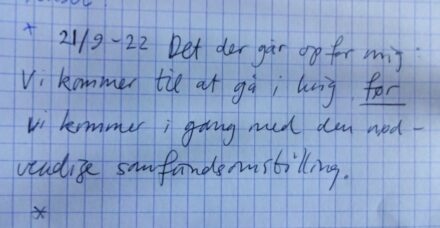 * 21/9-22 Det der går op for mig:
Vi kommer til at gå i krig før
vi kommer i gang med den nød-
vendige samfundsomstilling.
*